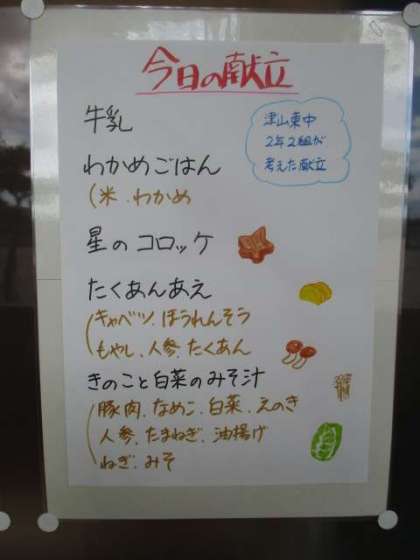 今日の献立
牛乳
津山東中
2年2組が
考えた献立
わかめごはん
(米.わかめ
星のコロッケ
たくあんあえ
(キャベツ.ほうれんそう
もやし.人参.たくあん
きのこと白菜のみそ汁
(豚肉.なめこ.白菜.えのき
人参.たまねぎ.油揚げ
ねぎ.みそ